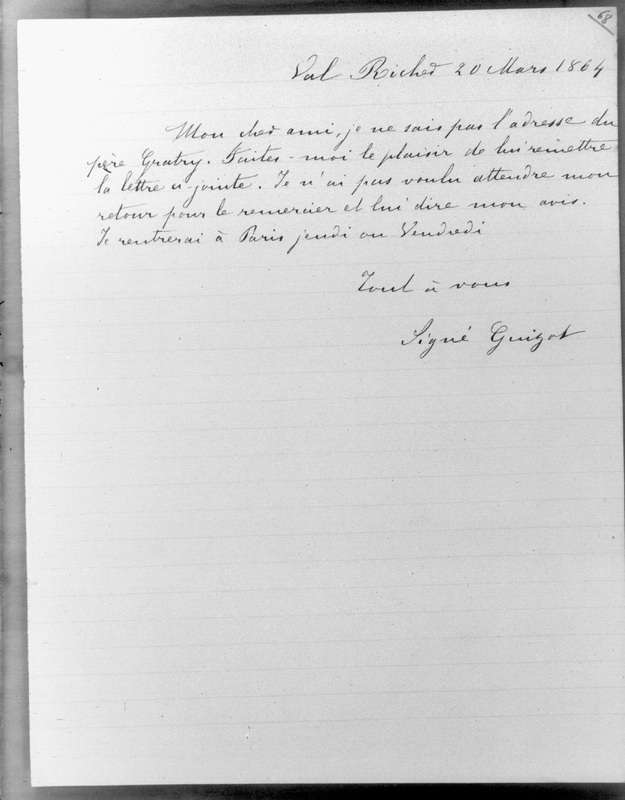 68
Val Richer 20 Mars 1864
Mon cher ami, je ne sais pas l'adresse du
père Gratry. Faites-moi le plaisir de lui remettre
la lettre ci-jointe. Je n'ai pas voulu attendre mon
retour pour le remercier et lui dire mon avis.
Je rentrerai à Paris jeudi ou Vendredi
Tout à vous
Signé Guizot